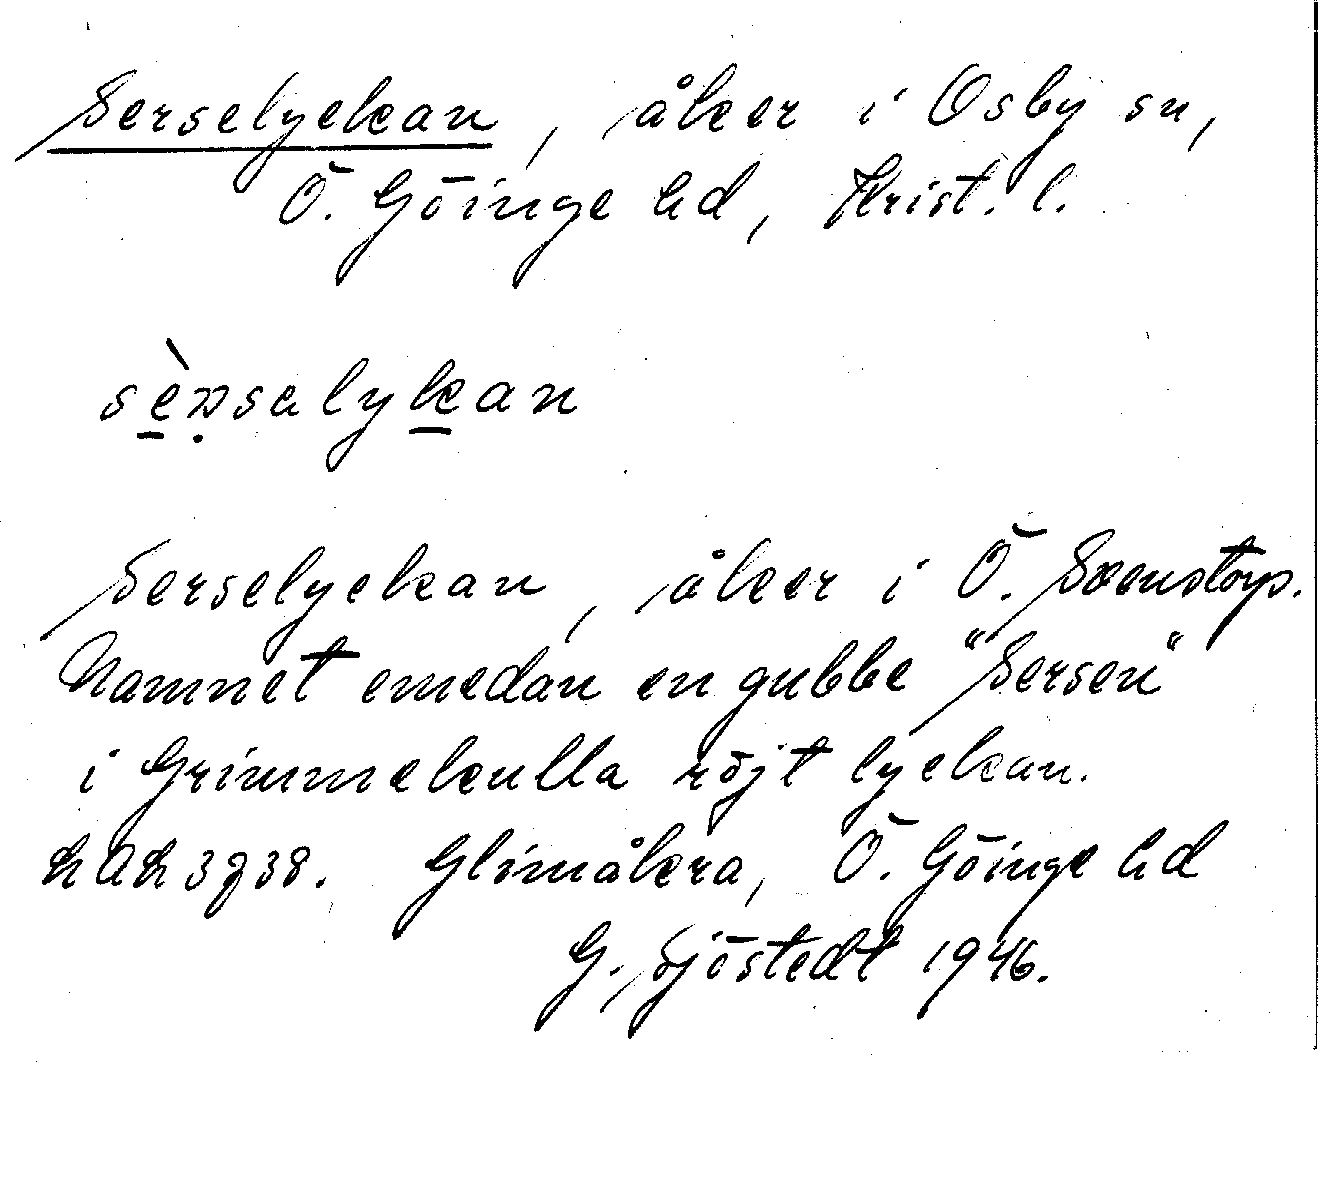 Serselyckan, åker i Osby sn,
Ö. Göinge hd, Krist. l.
sèrsalykan
Serselyckan, åker i Ö. Svenstorp.
Namnet emedan en gubbe "Sersen"
i Grimmekulla röjt lyckan.
3938. Glimåkra, Ö. Göinge hd
G. Sjöstedt 1946.